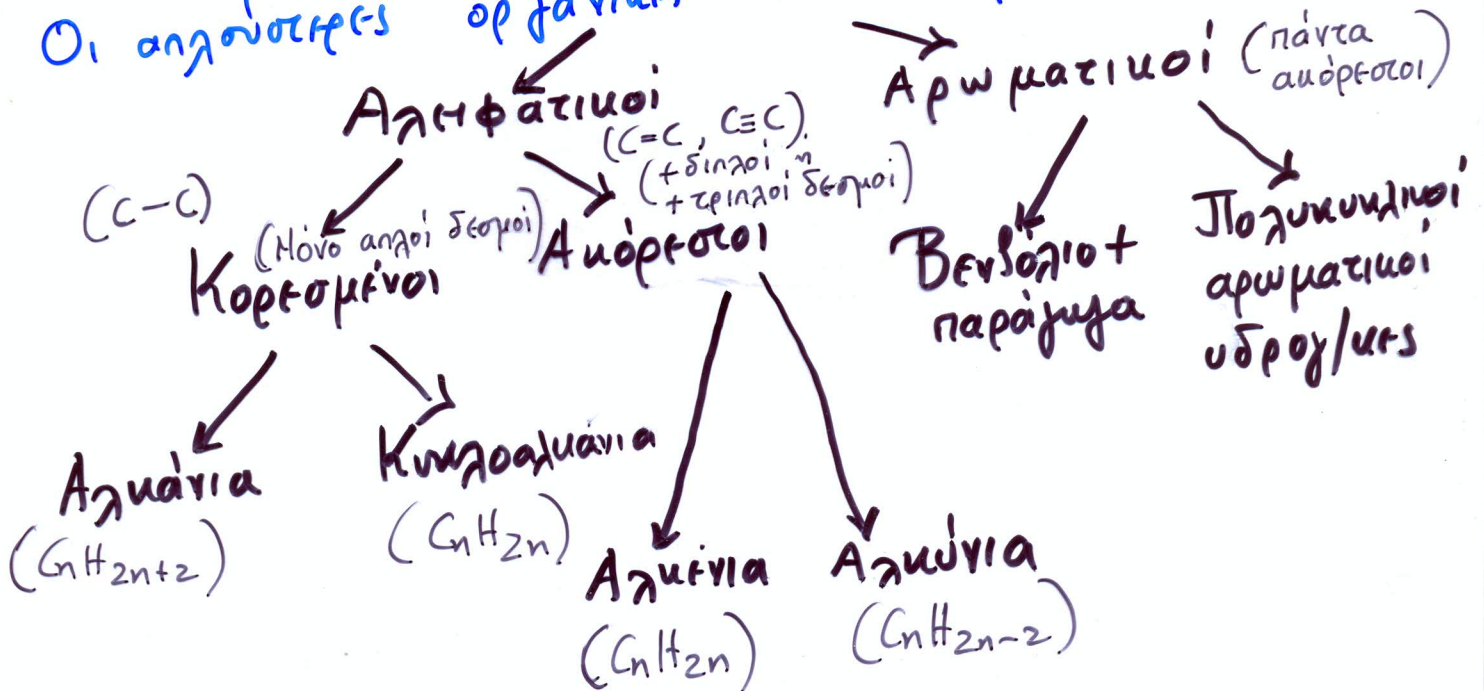 Οι απλούστερες
Αλειφατικοί
Αρωματικοί (πάντα
ακόρεστοι)
(C=C, C≡C)
(+διπλοί ή
+τριπλοί δεσμοί)
(C-C)
(Μόνο απλοί δεσμοί)
Κορεσμένοι
Ακόρεστοι
Βενζόλιο+
παράγωγα
Πολυκυκλικοί
αρωματικοί
υδρογ/κες
Αλκάνια
(CnH2n+2)
Κυκλοαλκάνια
(CnH2n)
Αλκένια
(CnH2n)
Αλκύνια
(CnH2n-2)